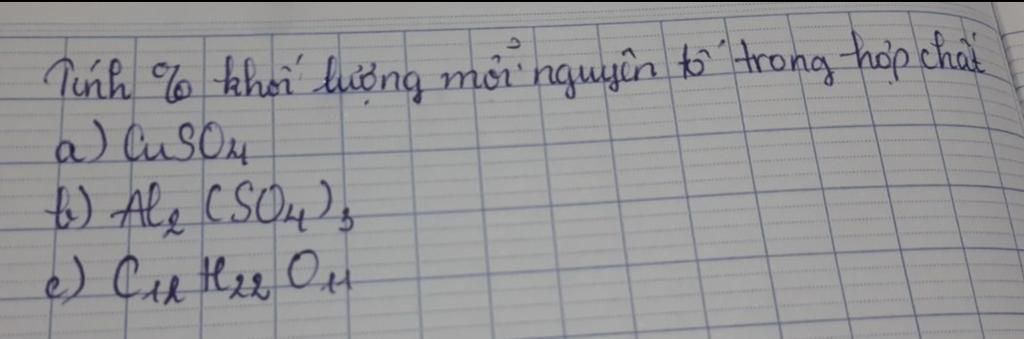 Tính % khối lượng mỗi nguyên tố trong hợp chất
a) CuSO4
b) Al2(SO4)3
c) C12H22O11